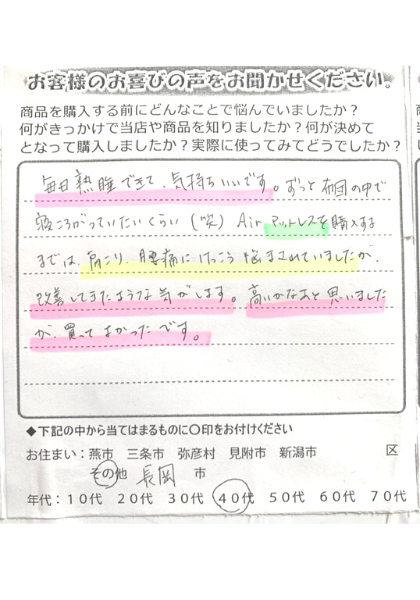 お客様のお喜びの声をお聞かせください。
商品を購入する前にどんなことで悩んでいましたか？
何がきっかけで当店や商品を知りましたか？何が決めて
となって購入しましたか？実際に使ってみてどうでしたか？
毎日熟睡できて、気持ちいいです。ずっと布団の中で
寝ころがっていたいくらい（笑） Air マットレスを購入する
までは、肩こり、腰痛にけっこう悩まされていましたが、
改善してきたような気がします。高いかなあと思いました
が、買ってよかったです。
◆下記の中から当てはまるものに○印をお付けください
お住まい：燕市 三条市 弥彦村 見附市 新潟市 区
その他 長岡 市
年代：１０代 ２０代 ３０代 ４０代 ５０代 ６０代 ７０代